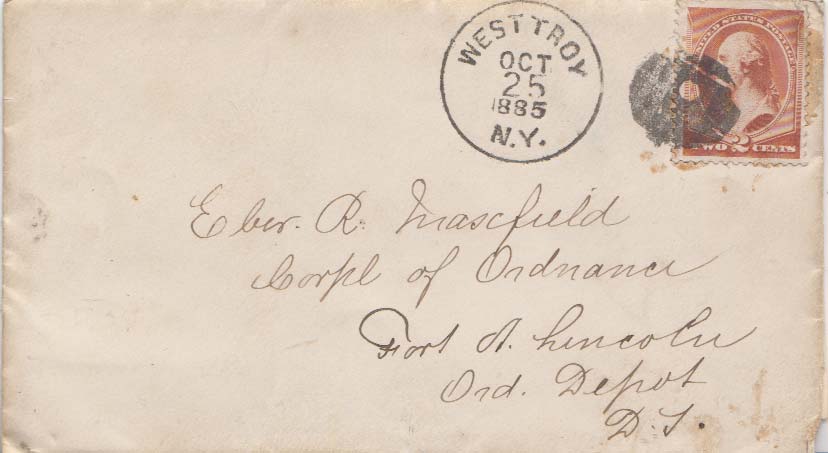 WEST TROY
OCT
25
1885
N.Y.
UNITED STATES POSTAGE
TWO 2 CENTS
Eber. R. Mascfield
Corpl of Ordnance
Fort A. Lincoln
Ord. Depot
D. T.